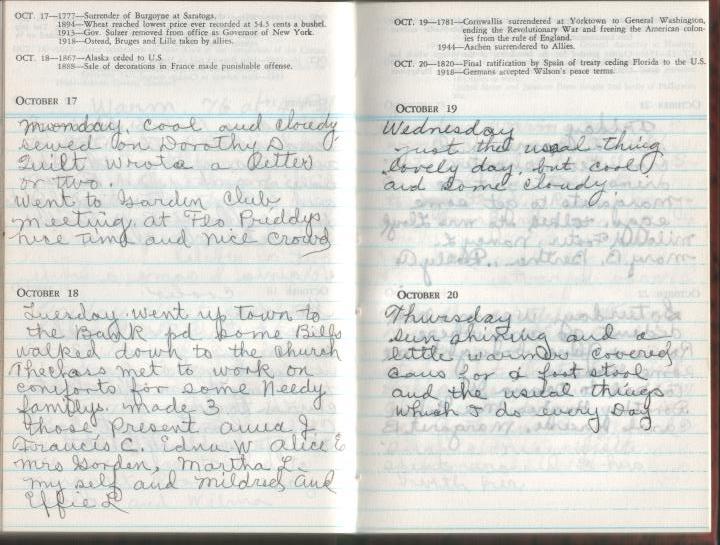 OCT. 17—1777—Surrender of Burgoyne at Saratoga.
1894—Wheat reached lowest price ever recorded at 54.5 cents a bushel.
1913—Gov. Sulzer removed from office as Governor of New York.
1918—Ostend, Bruges and Lille taken by allies.
OCT. 18—1867—Alaska ceded to U.S.
1888—Sale of decorations in France made punishable offense.
OCTOBER 17
Moonday. cool and cloudy
sewed on Dorothy D.
Quilt wrote a letter
or two.
Went to Garden Club
meeting at Flo Priddys
nice time and nice crowd
OCTOBER 18
Tuesday went up town to
the Bank pd some Bills
walked down to the church
the class met to work on
comforts for some Needy
familys. made 3
those Present anna J
Francis C. Edna W alice E
mrs Gorden, Martha L.
my self and mildred and
Effie L
OCT. 19—1781—Cornwallis surrendered at Yorktown to General Washington,
ending the Revolutionary War and freeing the American colon-
ies from the rule of England.
1944—Aachen surrendered to Allies.
OCT. 20—1820—Final ratification by Spain of treaty ceding Florida to the U.S.
1918—Germans accepted Wilson's peace terms.
OCTOBER 19
Wednesday
just the usual thing
lovely day. but cool
aid some cloudy.
OCTOBER 20
Thursday
sun shining and a
little warmer covered
cans for a foot stool
and the usual things
which I do every Day